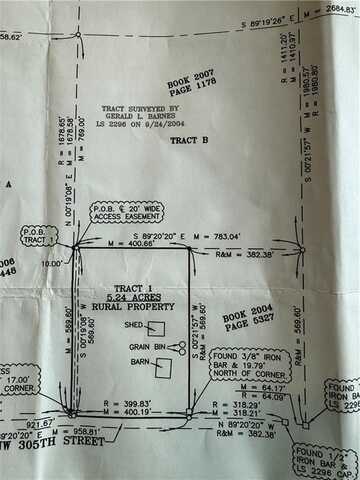 M = 2684.83'
58.62'
S 89°19'26" E
R = 1411.20'
M = 1410.97'
BOOK 2007
PAGE 1178
M = 1980.57'
R = 1980.80'
TRACT SURVEYED BY
GERALD L. BARNES
LS 2296 ON 9/24/2004
TRACT B
R = 1678.65'
M = 1678.58'
M = 769.00'
N 00°19'08" E
S 00°21'57" W
A
P.O.B. ℄ 20' WIDE
ACCESS EASEMENT
P.O.B.
TRACT 1
S 89°20'20" E M = 783.04'
M = 400.66'
R&M = 382.38'
10.00'
448
TRACT 1
5.24 ACRES
RURAL PROPERTY
SHED
GRAIN BIN
BARN
M = 569.60'
S 00°19'08" W
569.60'
S 00°21'57" W
R&M = 569.60'
BOOK 2004
PAGE 5327
R&M = 569.60'
FOUND 3/8" IRON
BAR & 19.79'
NORTH OF CORNER
17.00'
CORNER
M = 64.17'
R = 64.09'
FOUND
IRON BAR
LS 2296
R = 399.83'
M = 400.19'
R = 318.29'
M = 318.21'
921.67'
M = 958.81'
N 89°20'20" E
R&M = 382.38'
89°20'20" E
NW 305TH STREET
FOUND 1/2"
IRON BAR &
LS 2296 CAP